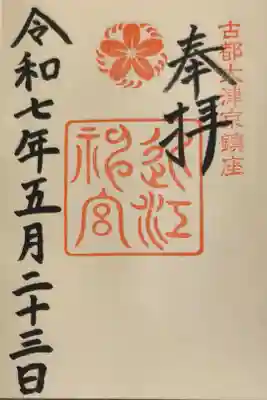 古都大津京鎮座
奉拝
近江
神宮
令和七年五月二十三日